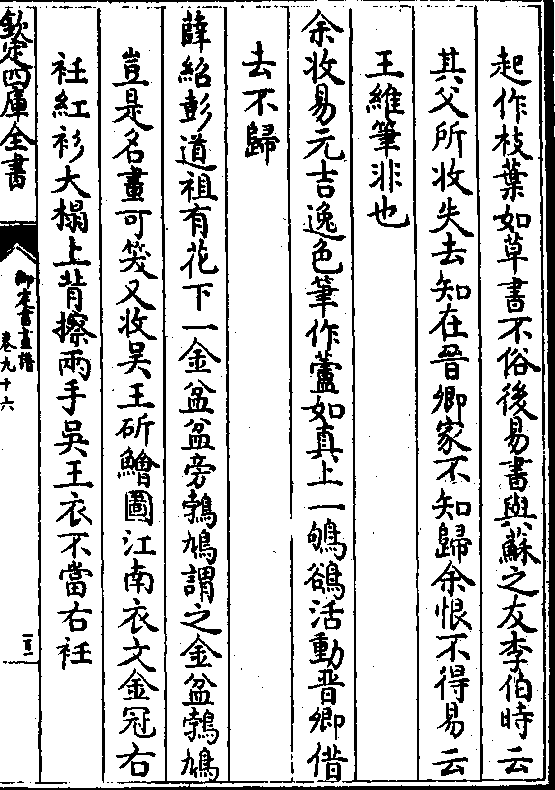 起作枝葉如草書不俗後易書與蘇之友李伯時云
其父所收失去知在晉卿家不知歸余恨不得易云
王維筆非也
余收易元吉逸色筆作蘆如真上一鸲鵒活動晉卿借
去不歸
薛紹彭道祖有花下一金盆盆旁鵓鳩謂之金盆鵓鳩
豈是名畫可笑又收吳王斫鱠圖江南衣文金冠右
衽紅衫大榻上背擦兩手吳王衣不當右衽
欽定四庫全書
御定書畫譜
卷九十六